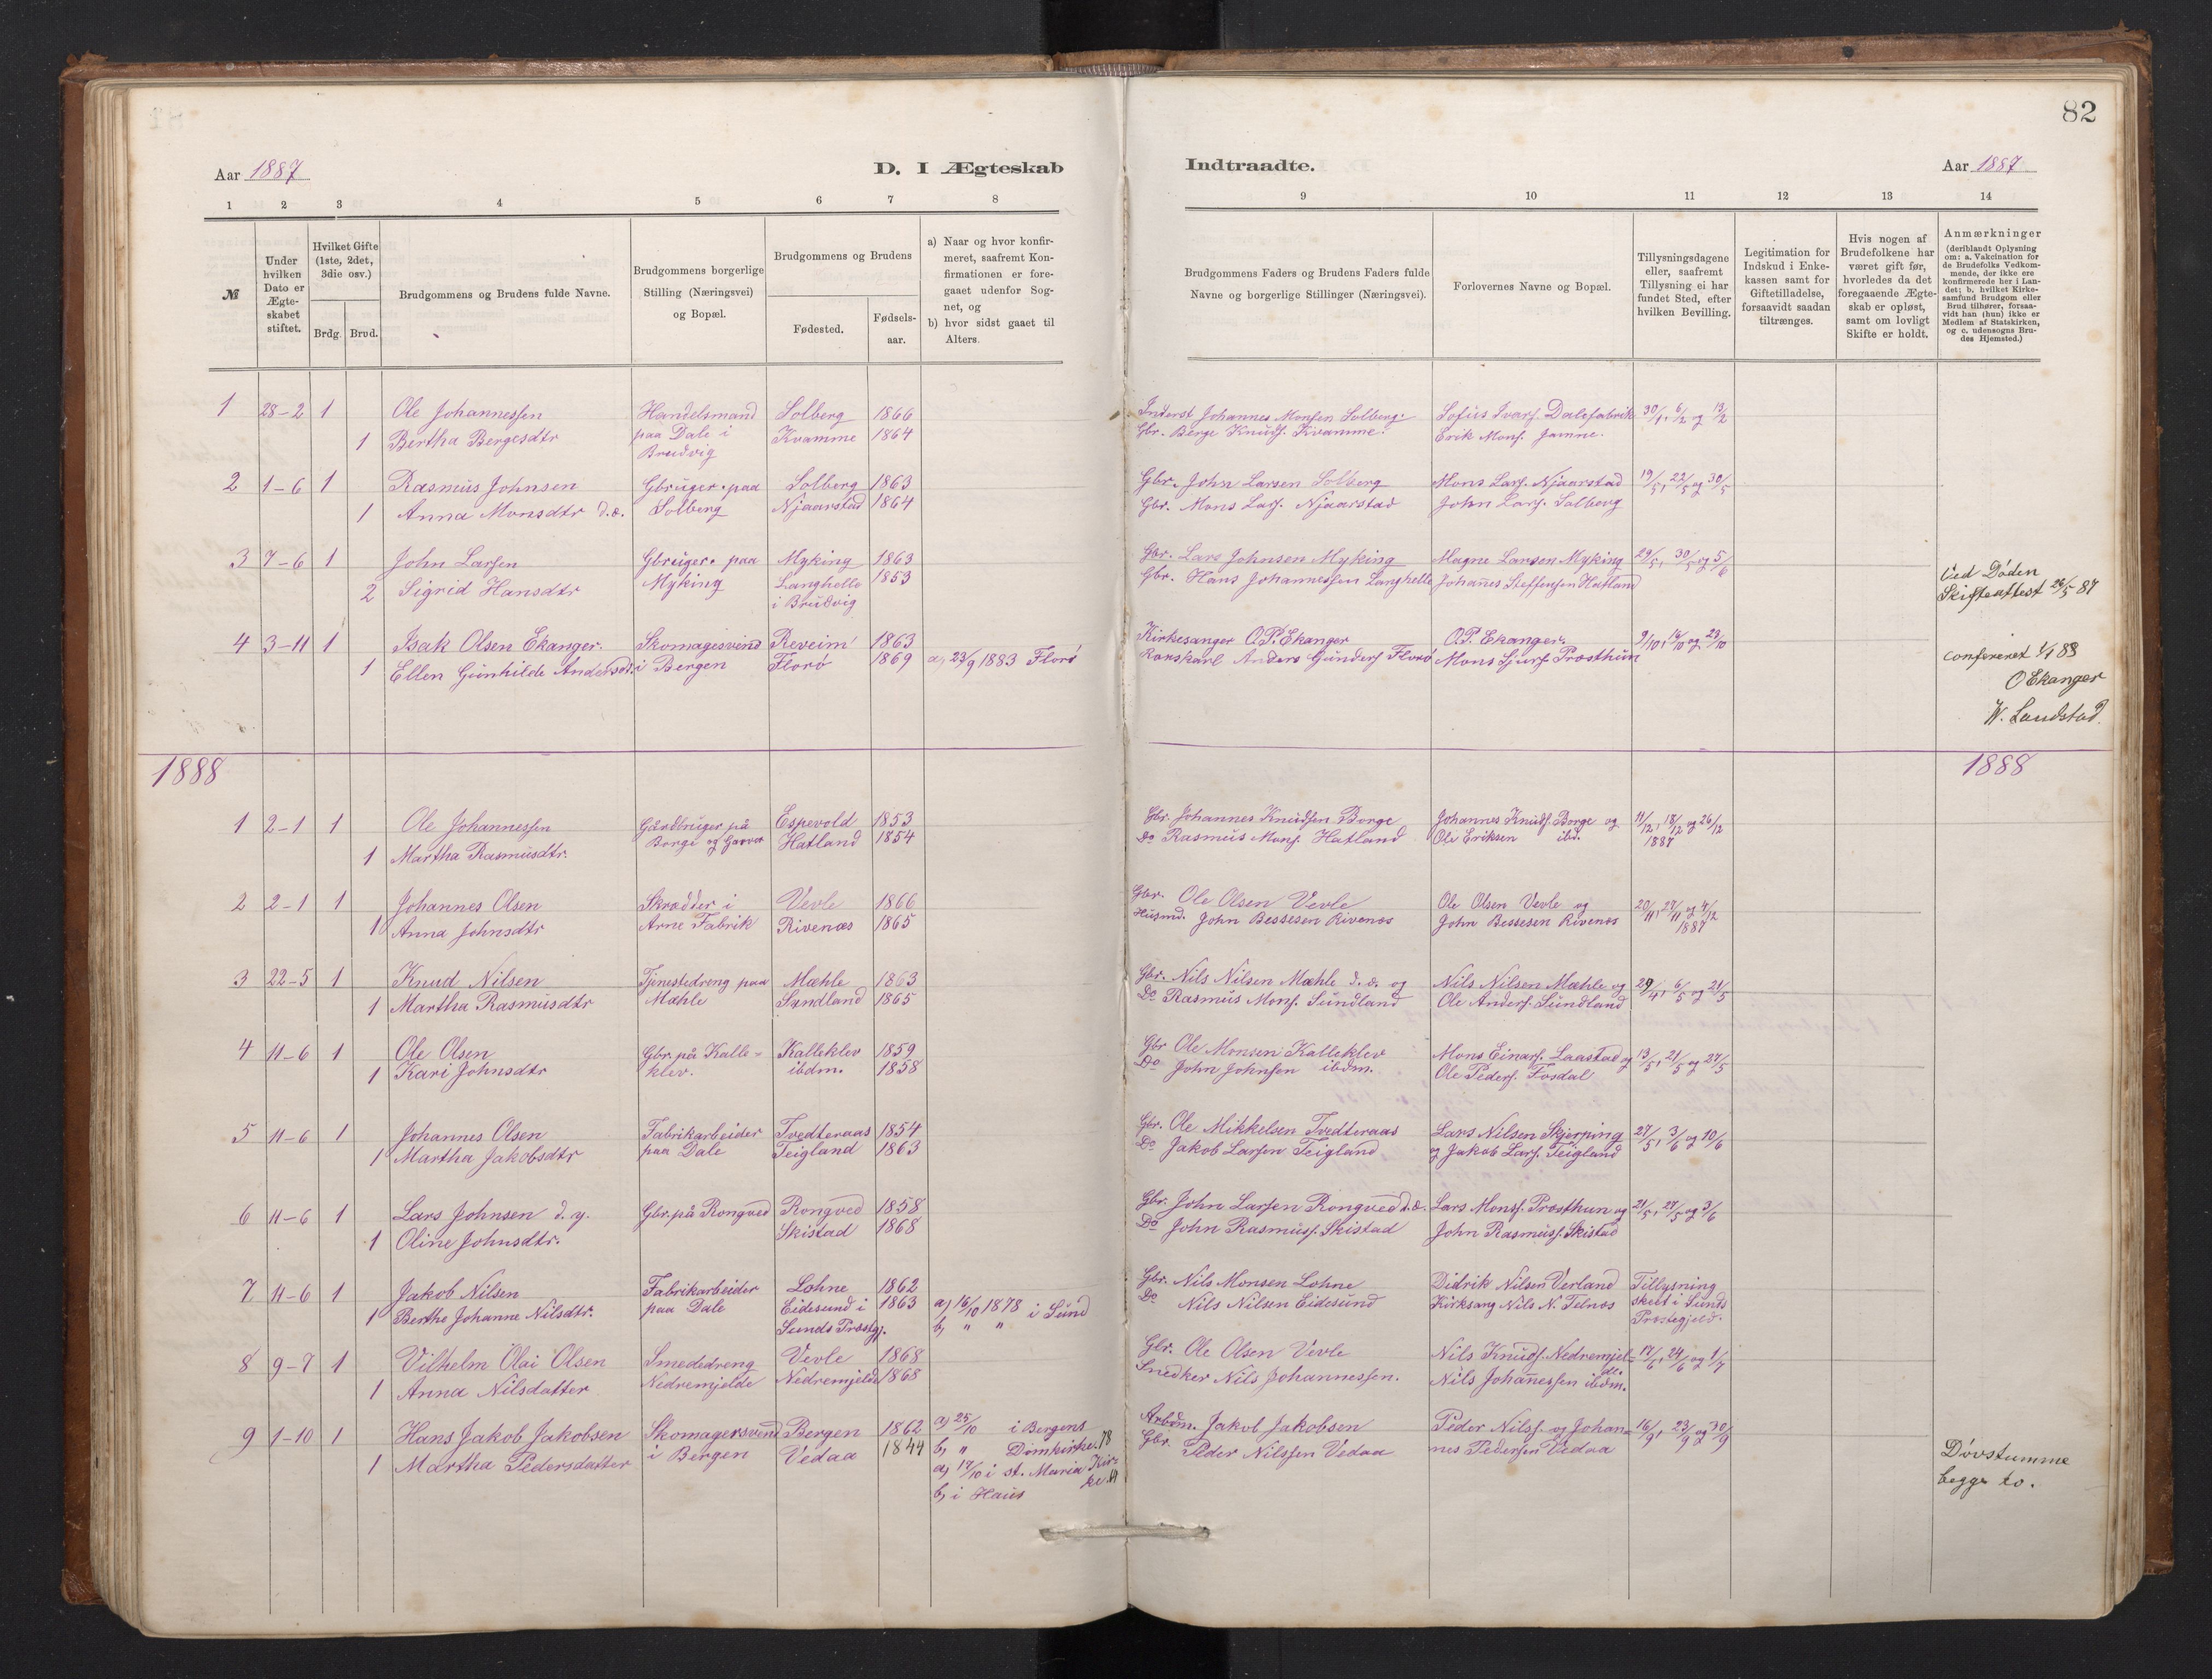 82
Aar 1887
D. I Ægteskab
Indtraadte.
Aar 1887
1 2 3 4 5 6 7 8 9 10 11 12 13 14
№
Under hvilken Dato er Ægteskabet stiftet.
Hvilket Gifte (1ste, 2det, 3die osv.)
Brdg. Brud.
Brudgommens og Brudens fulde Navne.
Brudgommens borgerlige Stilling (Næringsvei) og Bopæl.
Brudgommens og Brudens
Fødested.
Fødselsaar.
a) Naar og hvor konfirmeret, saafremt Konfirmationen er foregaaet udenfor Sognet, og
b) hvor sidst gaaet til Alters.
Brudgommens Faders og Brudens Faders fulde Navne og borgerlige Stillinger (Næringsvei).
Forlovernes Navne og Bopæl.
Tillysningsdagene eller, saafremt Tillysning ei har fundet Sted, efter hvilken Bevilling.
Legitimation for Indskud i Enkekassen samt for Giftetilladelse, forsaavidt saadan tiltrænges.
Hvis nogen af Brudefolkene har været gift før, hvorledes da det foregaaende Ægteskab er opløst, samt om lovligt Skifte er holdt.
Anmærkninger (deriblandt Oplysning om: a. Vakcination for de Brudefolks Vedkommende, der ikke ere konfirmerede her i Landet; b. hvilket Kirkesamfund Brudgom eller Brud tilhører, forsaavidt han (hun) ikke er Medlem af Statskirken, og c. udensogns Brudes Hjemsted.)
1 28-2 1 Ole Johannessen Handelsmand Solberg 1866 Inderst Johannes Monsen Solberg. Sofus Ivars. Dalefabrik 30/1, 6/2 og 13/2
1 Bertha Bergesdtr paa Dale i Kvamme 1864 Gbr. Berge Knuds. Kvamme. Erik Mons. Jamne.
Brudvig
2 1-6 1 Rasmus Johnsen Gbruger paa Solberg 1863 Gbr. John Larsen Solberg Mons Lars. Njaarstad 19/5, 22/5 og 30/5
1 Anna Monsdtr d.æ. Solberg Njaarstad 1864 Gbr. Mons Lars. Njaarstad John Lars. Solberg
3 7-6 1 John Larsen Gbruger paa Myking 1863 Gbr. Lars Johnsen Myking Magne Larsen Myking 29/5, 30/5 og 5/6
2 Sigrid Hansdtr Myking Langhelle 1853 Gbr. Hans Johannessen Langhelle Johanes Steffensen Hatland Ved Døden
i Brudvig Skifteattest 26/5 87
4 3-11 1 Isak Olsen Ekanger. Skomagesvend Reveim 1863 Kirkesanger O.P. Ekanger O.P. Ekanger. 9/10, 16/10 og 23/10
1 Ellen Gunhilde Andersdtr. i Bergen Florø 1869 a) 23/9 1883 Florø Anders Gunders. Florø Mons Sjurs. Prosthun confereret 1/1 88
O Ekanger
W. Landstad.
1888
1888
1 2-1 1 Ole Johannessen Gardbruger på Espevold 1853 Gbr. Johannes Knudsen Borge Johannes Knuds. Borge og 11/12, 18/12 og 26/12
1 Martha Rasmusdtr. Borge og Hatland 1854 Do Rasmus Mons. Hatland Ole Eriksen ibd. 1887
2 2-1 1 Johannes Olsen Skrædder i Vevle 1866 Gbr. Ole Olsen Vevle Ole Olsen Vevle og 20/11, 27/11 og 4/12
1 Anna Johnsdtr Arne Fabrik Rivenæs 1865 Husmd. John Bessesen Rivenæs John Bessesen Rivenæs 1887
3 22-5 1 Knud Nilsen Tjenestedreng paa Mæhle 1863 Gbr. Nils Nilsen Mæhle d.æ. og Nils Nilsen Mæhle og 29/4, 6/5 og 21/5
1 Martha Rasmusdtr Mæhle Sundland 1865 Do Rasmus Mons. Sundland Ole Anders. Sundland
4 11-6 1 Ole Olsen Gbr. på Kalle- Kalleklev 1859 Gbr Ole Monsen Kalleklev Mons Einars. Laastad og 13/5, 21/5 og 27/5
1 Kari Johnsdtr klev. ibdm. 1858 Do John Johnsen ibdm. Ole Peders. Fosdal
5 11-6 1 Johannes Olsen Fabrikarbeider Tvedteraas 1854 Gbr. Ole Mikkelsen Tvedteraas Lars Nilsen Skjerping 27/5, 3/6 og 10/6
1 Martha Jakobsdtr paa Dale Teigland 1863 Do Jakob Larsen Teigland og Jakob Lars. Teigland
6 11-6 1 Lars Johnsen d.y. Gbr. på Rongved Rongved 1858 Gbr. John Larsen Rongved d.æ. Lars Monss. Prosthun og 21/5, 27/5 og 3/6
1 Oline Johnsdtr. Skistad 1868 Do John Rasmuss. Skistad John Rasmuss. Skistad
7 11-6 1 Jakob Nilsen Fabrikarbeider Lohne 1862 Gbr. Nils Monsen Lohne Didrik Nilsen Verland Tillysning
1 Berthe Johanne Nilsdtr. paa Dale Eidesund i 1863 a) 16/10 1878 i Sund Do Nils Nilsen Eidesund Kirksang Nils N. Telnæs skeet i Sunds
Sunds Præstgj. b) " " Præstegjeld.
8 9-7 1 Vilhelm Olai Olsen Smededreng Vevle 1868 Gbr. Ole Olsen Vevle Nils Knuds. Nedremjel- 17/6, 24/6 og 1/7
1 Anna Nilsdatter Nedremjelde Nedremjelde 1868 Snedker Nils Johannessen. Nils Johanessen ibdm.
9 1-10 1 Hans Jakob Jakobsen Skomagersvend Bergen 1862 a) 25/10 i Bergens Arbdm. Jakob Jakobsen Peder Nilss. og Johan- 16/9, 23/9 og 30/9
1 Martha Pedersdatter i Bergen Vedaa 1844 b) " Domkirke. 78 Gbr. Peder Nilssen Vedaa nes Pedersen Vedaa Døvstumme
a) 17/10 i st. Maria Kir- begge to.
b) i Haus